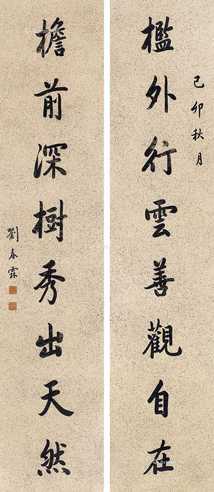 己卯秋月
檻外行雲善觀自在
檐前深樹秀出天然
劉春霖